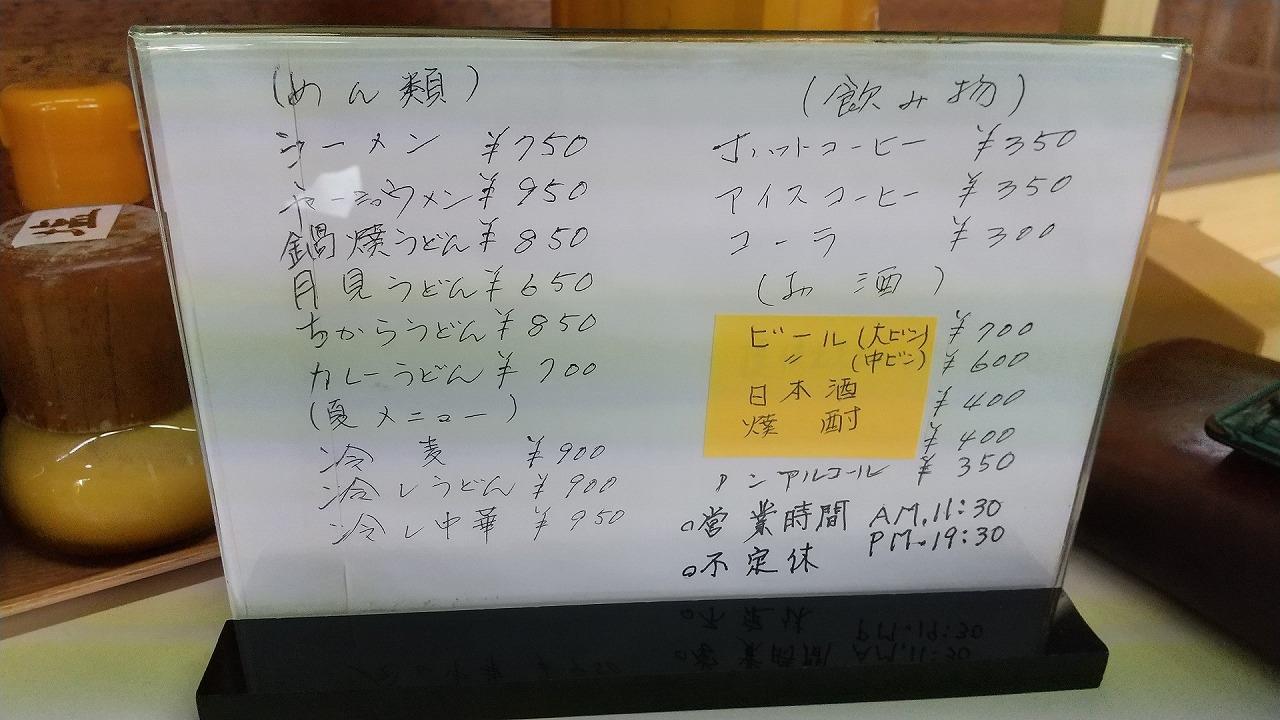 (めん類)
ラーメン ¥750
チャーシュウメン ¥950
鍋焼うどん ¥850
月見うどん ¥650
ちからうどん ¥850
カレーうどん ¥700
(夏メニュー)
冷麦 ¥900
冷しうどん ¥900
冷し中華 ¥950
(飲み物)
ホットコーヒー ¥350
アイスコーヒー ¥350
コーラ ¥300
(お酒)
ビール(大ビン) ¥700
〃 (中ビン) ¥600
日本酒 ¥400
焼酎 ¥400
ノンアルコール ¥350
○営業時間 AM.11:30
PM.19:30
○不定休
塩